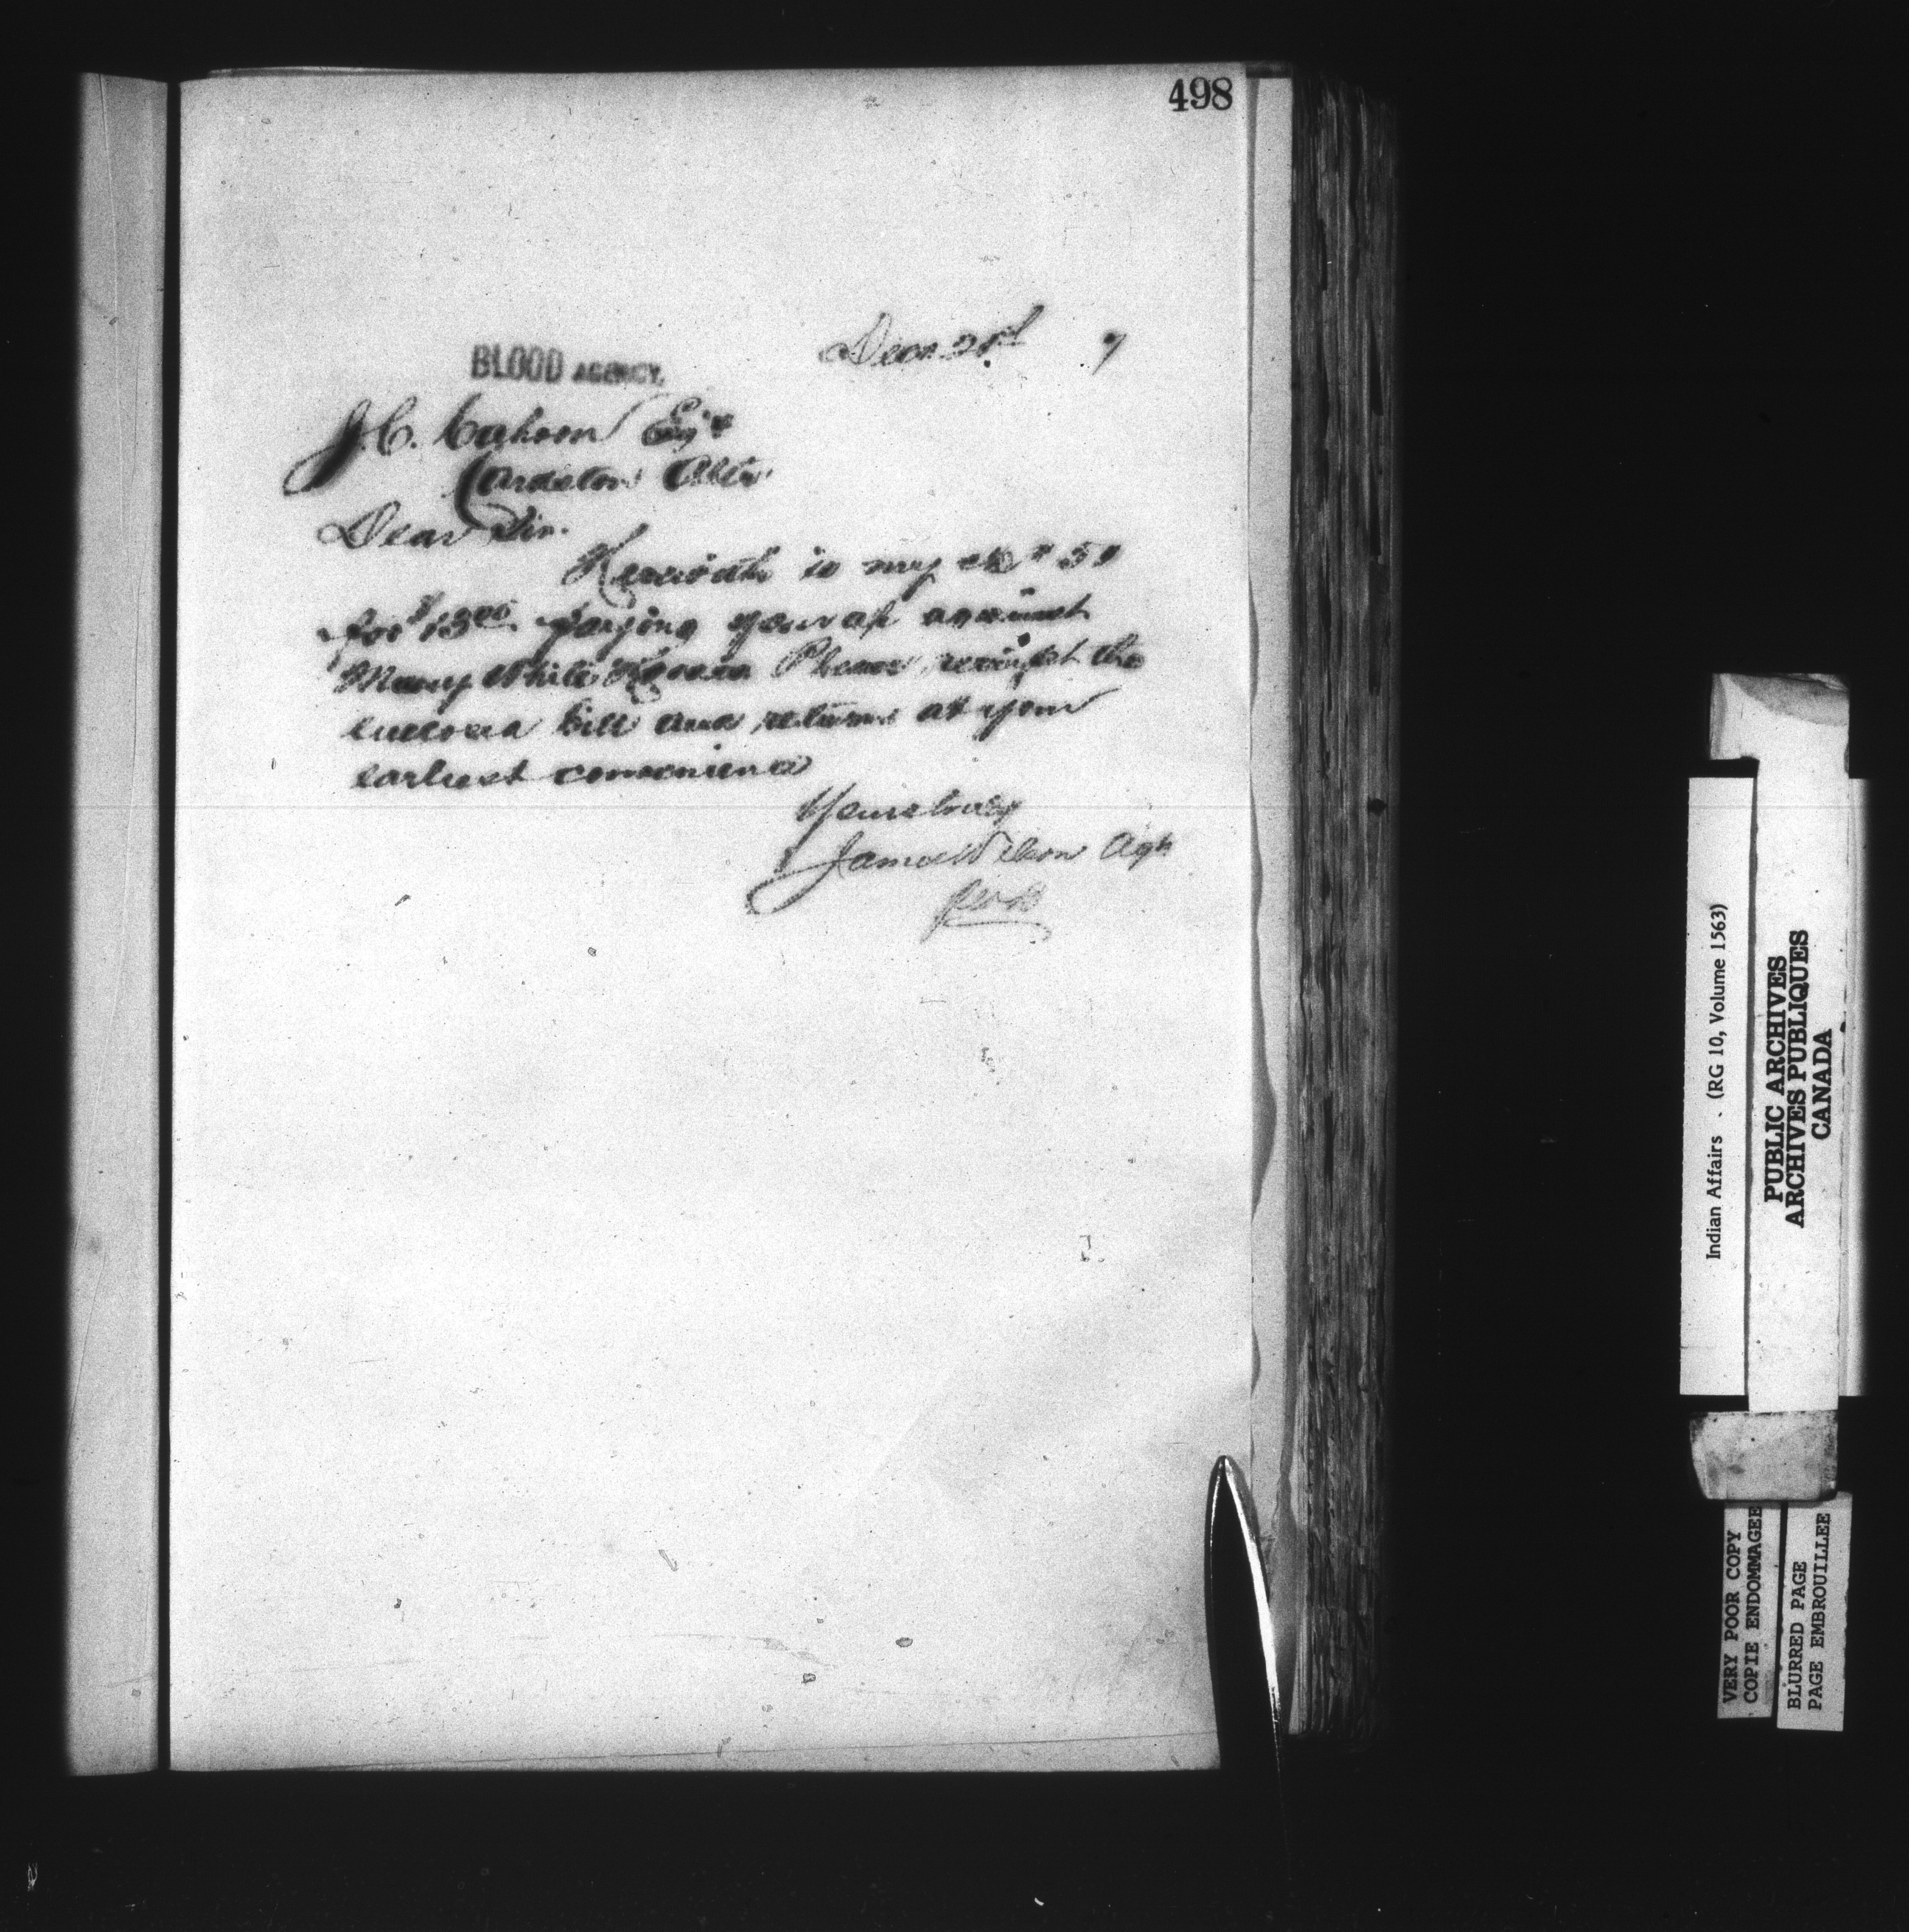 498
BLOOD AGENCY,
Decr. 21st 7
J.C. Cahoon Esqr
Cardston Alta
Dear Sir.
Herewith is my ck # 51
for $13 00 paying your a/c against
Many White Horses Please receipt the
enclosed bill and return at your
earliest convenience
Yours truly
James Wilson Agt
Indian Affairs . (RG 10, Volume 1563)
PUBLIC ARCHIVES
ARCHIVES PUBLIQUES
CANADA
VERY POOR COPY
COPIE ENDOMMAGEE
BLURRED PAGE
PAGE EMBROUILLEE